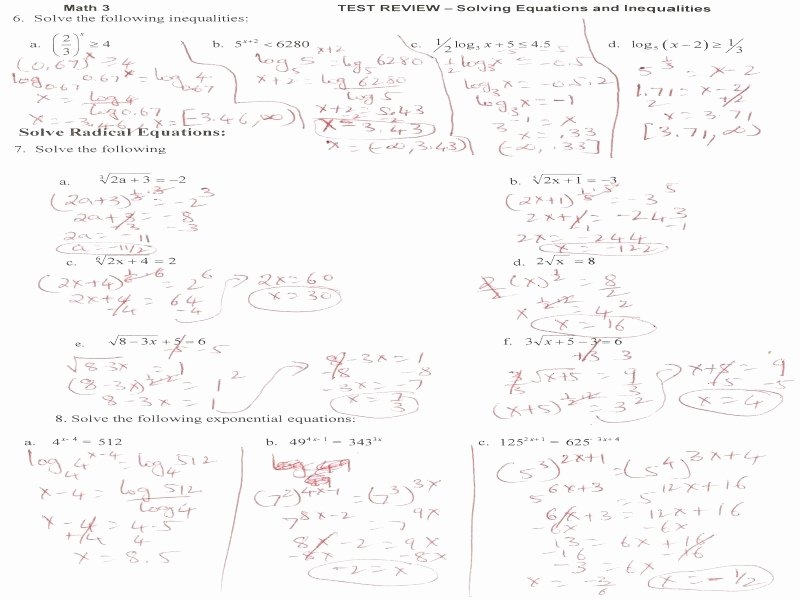 Math 3
TEST REVIEW – Solving Equations and Inequalities
6. Solve the following inequalities:
a. (2/3)^x ≥ 4
b. 5^(x+2) < 6280
c. 1/2 log₃ x + 5 ≤ 4.5
d. log₅ (x − 2) ≥ 1/3
(0.67)^x ≥ 4
log₀.₆₇ 0.67^x = log 4 0.67
x = log 4 / log 0.67
x = -3.46, x = [-3.46, ∞)
log₅ 5^(x+2) = log 6280
x+2 = log 6280 / log 5
x+2 = 5.43
x = 3.43
x = (-∞, 3.43)
1/2 log₃ x = -0.5
log₃ x = -0.5 · 2
log₃ x = -1
3^-1 = x
x = .33
(-∞, .33]
5^(1/3) = x - 2
1.71 = x - 2
x = 3.71
[3.71, ∞)
Solve Radical Equations:
7. Solve the following
a. ∛(2a + 3) = −2
(2a+3)^(1/3·3) = -2^3
2a + 3 = -8
-3 -3
2a = -11
a = -11/2
b. ⁵√(2x + 1) = −3
(2x+1)^(1/5·5) = -3^5
2x + 1 = -243
-1 -1
2x = -244
x = -122
c. ⁶√(2x + 4) = 2
(2x+4)^(1/6·6) = 2^6
2x + 4 = 64
-4 -4
2x = 60
x = 30
d. 2√x = 8
2 (x)^(1/2) = 8/2
x^(1/2·2) = 4^2
x = 16
e. √(8 − 3x) + 5 = 6
-5 = 5
√(8-3x) = 1
(8-3x)^(1/2·2) = 1^2
8-3x = 1
8 - 3x = 1
-8 -8
-3x = -7
x = 7/3
f. 3√(x + 5) − 3 = 6
+3 3
3/3 √(x+5) = 9/3
(x+5)^(1/2·2) = 3^2
x + 5 = 9
-5 -5
x = 4
8. Solve the following exponential equations:
a. 4^(x−4) = 512
log₄ 4^(x-4) = log₄ 512
x - 4 = log 512 / log 4
x - 4 = 4.5
+4 4
x = 8.5
b. 49^(4x−1) = 343^(3x)
(7^2)^(4x-1) = (7^3)^(3x)
7^(8x-2) = 7^(9x)
8x - 2 = 9x
-8x -8x
-2 = x
c. 125^(2x+1) = 625^(3x+4)
(5^3)^(2x+1) = (5^4)^(3x+4)
5^(6x+3) = 5^(12x+16)
6x + 3 = 12x + 16
-6x -6x
13 = 6x + 16
-16 -16
-3 = 6x
x = -3/6
x = -1/2